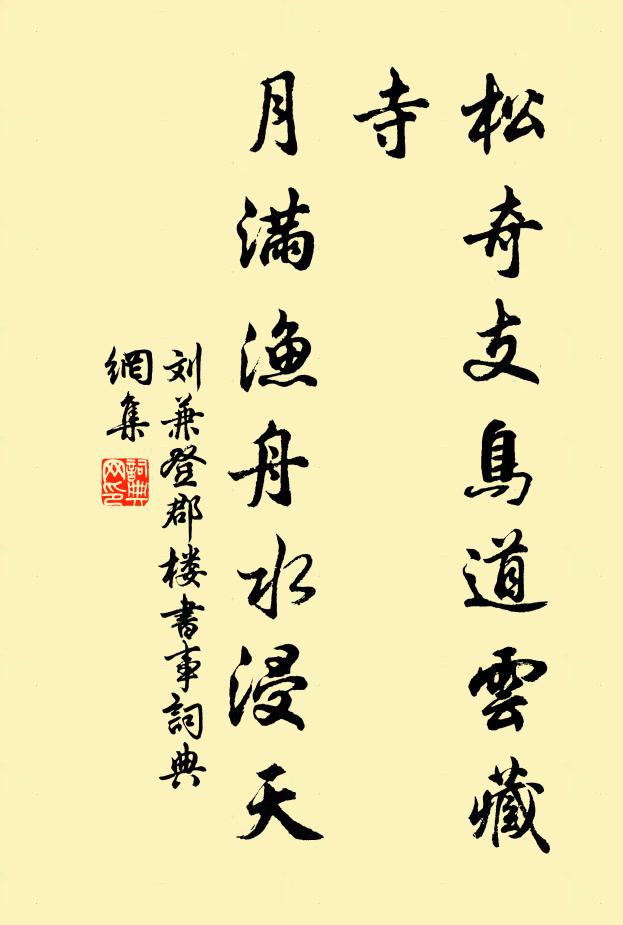 松奇支鳥道雲藏
寺
月满漁舟水浸天
刘兼登郡楼書事詞典
網集
詞典
网印